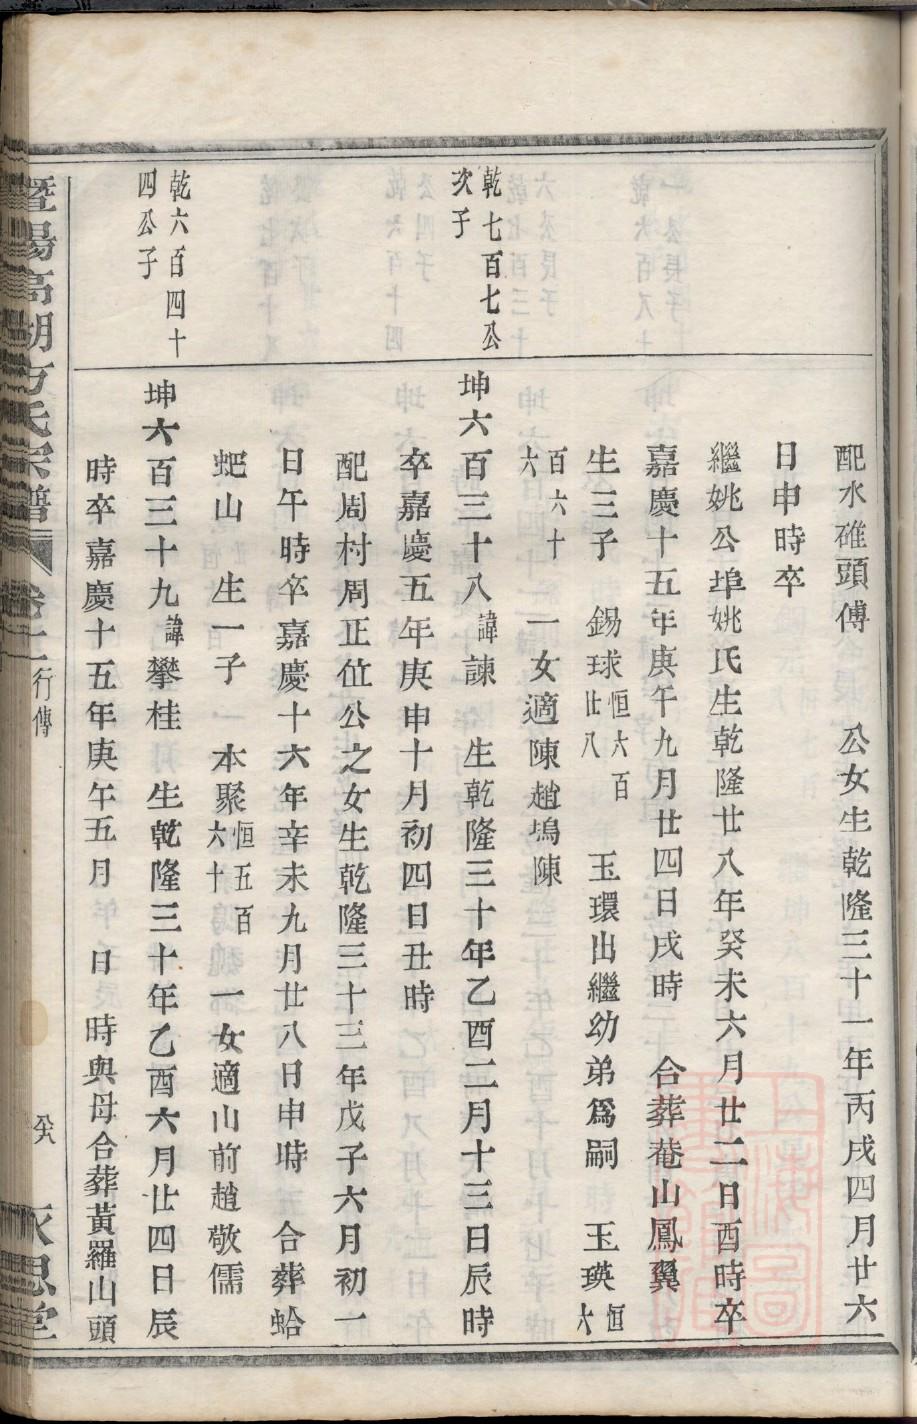 配水碓頭傅　公女生乾隆三十一年丙戌四月廿六
日申時卒
繼姚公埠姚氏生乾隆廿八年癸未六月廿二日酉時卒
嘉慶十五年庚午九月廿四日戌時　合葬菴山鳳翼
生三子　錫球恒六百廿八　玉環出繼幼弟爲嗣　玉瑛恒六
百六十六　一女適陳趙塢陳
乾七百七公
次子
坤六百三十八諱諫　生乾隆三十年乙酉二月十三日辰時
卒嘉慶五年庚申十月初四日丑時
配周村周正位公之女生乾隆三十三年戊子六月初一
日午時卒嘉慶十六年辛未九月廿八日申時　合葬蛤
蚆山　生一子　本聚恒五百六十　一女適山前趙敬儒
乾六百四十
四公子
坤六百三十九諱攀桂　生乾隆三十年乙酉六月廿四日辰
時卒嘉慶十五年庚午五月　日　時與母合葬黃羅山頭
暨陽高湖方氏宗譜
行傳
思堂